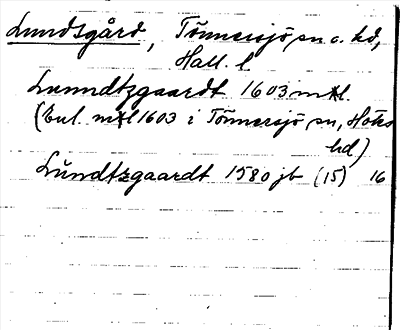 Lundsgård, Tönnersjö sn o. hd,
Hall. l
Lunndtzgaardt 1603 mtl.
(Enl. mtl 1603 i Tönnersjö sn, Höks
hd)
Lŭndtzgaardt 1580 jb (15) 16